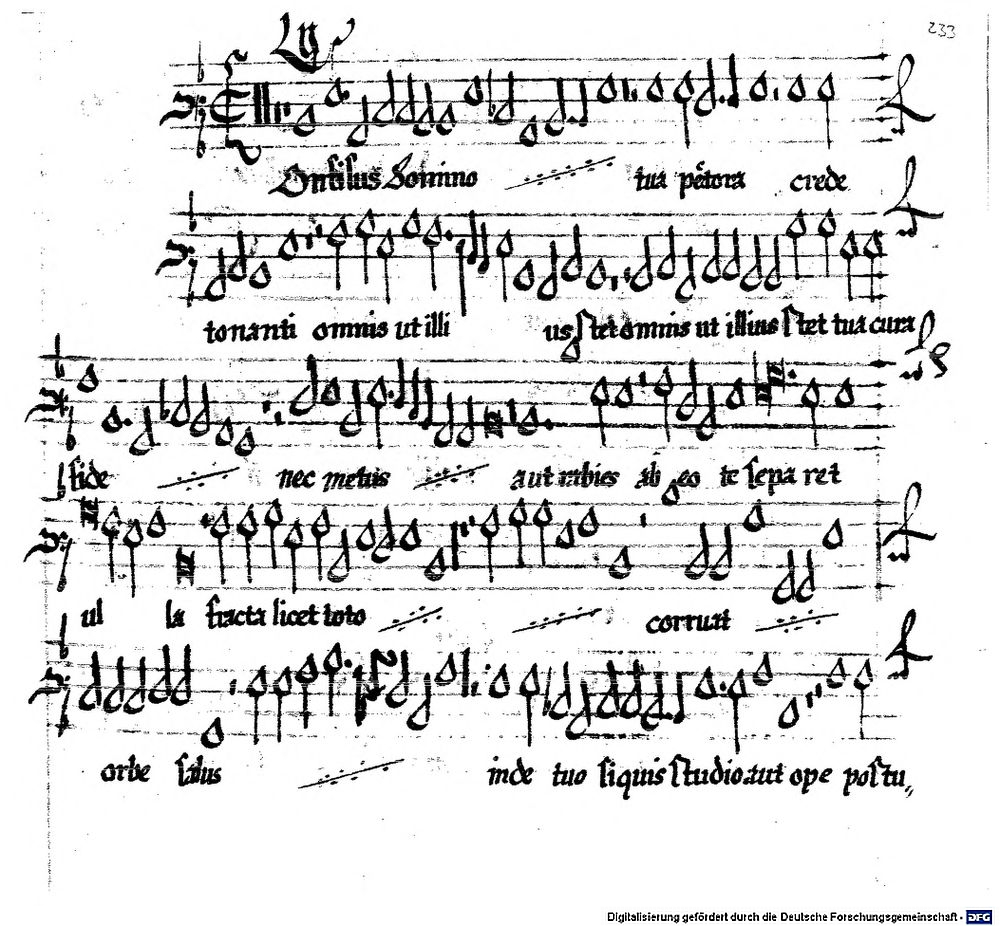 233
Onfisus Domino tua pectora crede
tonanti omnis ut illi us stet omnis ut illius stet tua cura
fide nec metus aut rabies ab eo te sepa ret
ul la fracta licet toto corruat
orbe salus inde tuo siquis studio aut ope postu„
Digitalisierung gefördert durch die Deutsche Forschungsgemeinschaft - DFG